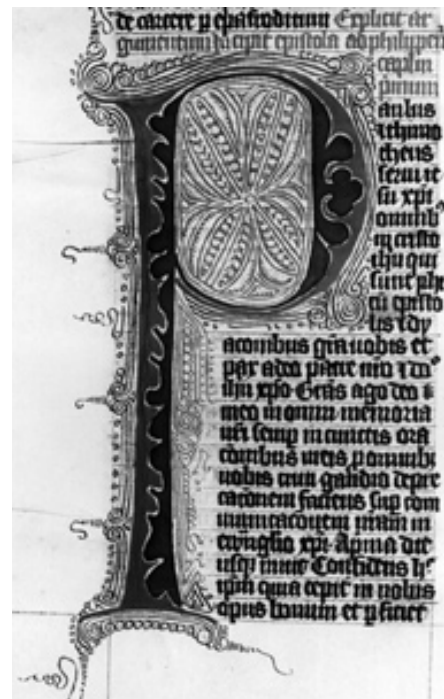 de carcere p epafroditum Explicit ar
gumentum Incipit epistola ad philippen
primum
aulus
thimo
theus
serui ie
su xpi
omnib
in cristo
ihu qui
sunt phi
cū episco
dy
aconibus gr̄a uobis et
pax a deo patre nr̄o do
ihu xp̄o Grās ago deo
meo in omni memoria
ur̄i semp in cunctis ora
conibus meis p omnib
uobis cum gaudio depre
cacōnem faciens sup com
municacōem ur̄am in
ewnglio xpi A pma die
usq nunc Confidens h
ipm quia cepit in uobis
opus bonum et p ficiet